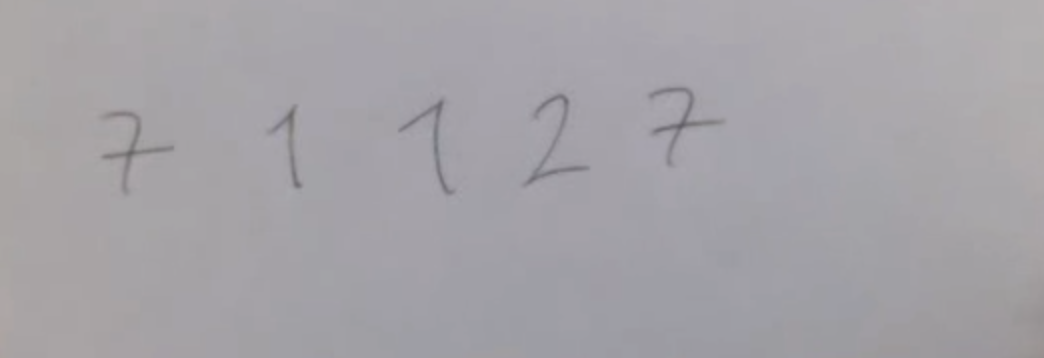 7 1 1 2 7